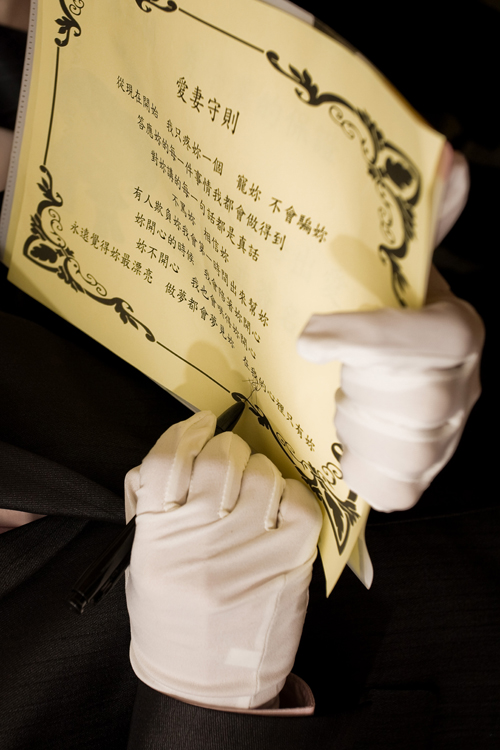 愛妻守則
從現在開始 我只疼妳一個 寵妳 不會騙妳
答應妳的每一件事情我都會做得到
對妳講的每一句話都是真話
不罵妳 相信妳
有人欺負妳我會第一時間出來幫妳
妳開心的時候 我會陪著妳開心
妳不開心 我也會哄得妳開心
永遠覺得妳最漂亮 做夢都會夢見妳
在我的心裡只有妳